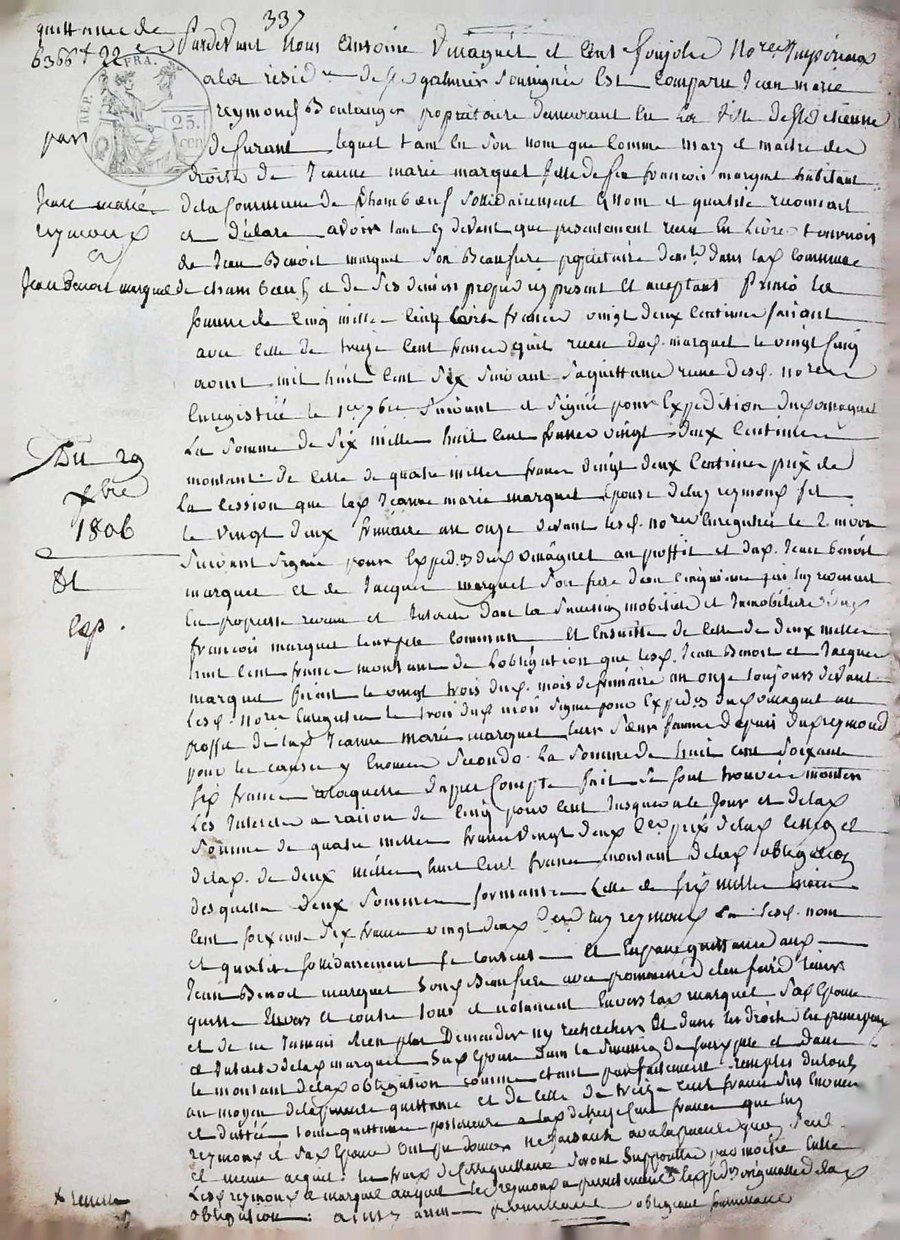 337
quittance de
6366# 22 c
par
jean marie
reymond
et
jean Benoit marquet
Du 29
xbre
1806
et
exp.
REP. FRA.
25 cen
Pardevant Nous antoine et Nores Impériaux
a la résid de St galmier soussignés est comparu Jean marie
reymond Boulanger propriétaire demeurant en la ville de St etienne
de furant, lequel tant en son nom que comme mary et maitre des
droits de Jeanne marie marquet fille de feu françois marquet habitant
de la commune de Chambœuf solidairement q nom et qualité reconnait
et déclare avoir tant cy devant que présentement reçu en Livres tournois
de Jean Benoit marquet son Beaufrere propriétaire dans lad commune
de chambœuf et de ses deniers propres icy présent et acceptant Primo la
somme de cinq mille cinq cents francs vingt deux centimes faisant
avec celle de treize cent francs quil reçu dud. marquet le vingt cinq
aoust mil huit cent six suivant sa quittance reçue desd. nores
Enregistrée le 1er 7bre suivant et signée pour Expedition
La somme de six mille huit cent francs vingt deux centimes
montant de celle de quatre milles francs vingt deux centimes prix de
la cession que lad Jeanne marie marquet épouse dud reymond fit
le vingt deux frimaire an onze devant lesd. nores Enregistrée le 2 nivose
suivant signé pour exped au proffit et dud. Jean Benoit
marquet et de Jacques marquet son frere
en propriété revenu et Interets dans la succession mobiliere et Immobiliere dud
françois marquet leur pere commun et Ensuitte de celle de deux milles
huit cent francs montant de Lobligation que lesd. Jean Benoit et Jacques
marquet firent le vingt trois dud. mois de frimaire an onze toujours devant
Lesd. nores Enregistrée le trois dud mois signé pour Exped au
proffit de lad Jeanne marie marquet leur sœur femme depuis dud reymond
pour les causes y Enoncées Secondo. La somme de huit cent soixante
six francs a laquelle dapres Compte fait se sont trouvés monter
Les Interets a raison de cinq pour cent Jusqua ce Jour et de lad
somme de quatre milles francs vingt deux ces prix de lad cession et
de lad. de deux milles huit cent francs montant de lad obligation
desquelles deux sommes formantes celle de six milles trois
cent soixante six francs vingt deux ces led reymond en sesd. nom
et qualité solidairement se contente et En passe quittance aud
Jean Benoit marquet sond Beaufrere avec promesse den faire tenir
quitte Envers et contre tous et notament Envers lad marquet sad Epouse
et de ne Jamais rien plus Demander ny rechercher Et dans les droits
et Interets de lad marquet sad Epouse dans la succession de feu sond pere et dans
le montant de lad obligation comme etant parfaitement remplis du tout
au moyen de la presente quittance et de celle de treize cent francs sus Enoncée
et dattée toute quittance posterieure a lad de treize cent francs que led
reymond et sad Epouse ont pu donner ne faisant avec la presente quun seul
et meme acquit: les frais de cette quittance seront supportés par moitié Entre
Lesd reymond et marquet auquel led reymond a présentement originalle de lad
obligation: ainsi obligeant